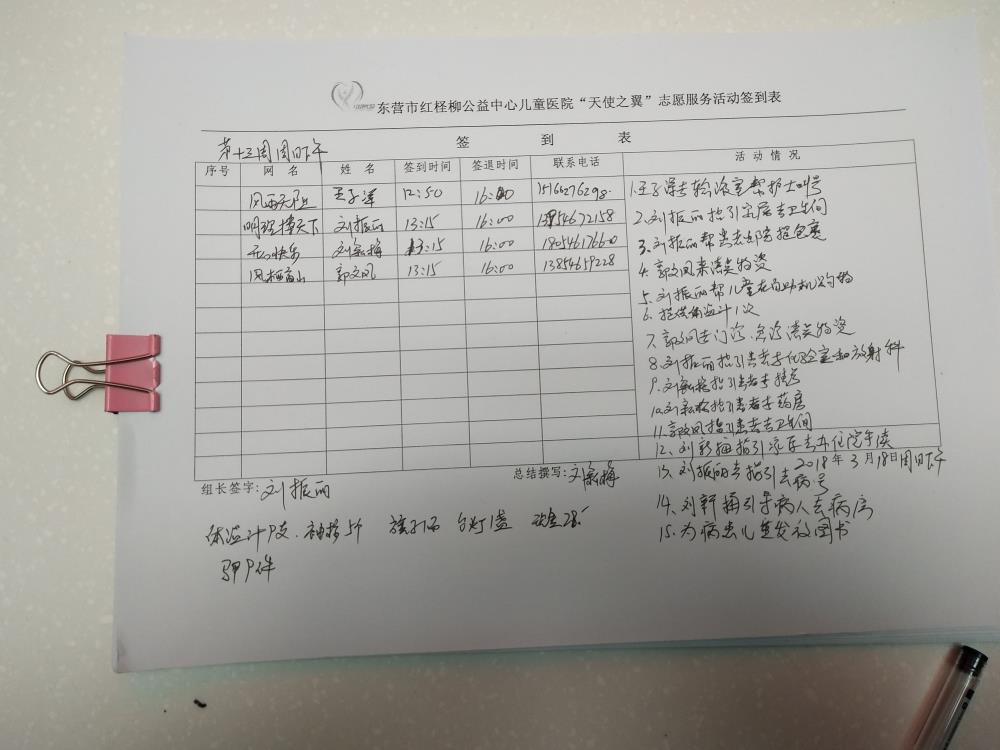 东营市红柽柳公益中心儿童医院“天使之翼”志愿服务活动签到表
签 到 表
第十三周周日下午
序号 网 名 姓 名 签到时间 签退时间 联系电话 活 动 情 况
风雨无阻 王子溪 12:50 16:00 15166276298
明珠 天下 刘振丽 13:15 16:00 13954672158
开心快乐 刘新梅 13:15 16:00
风栖高山 郭文凤 13:15 16:00 13854659228
1.王子溪去输液室帮护士叫号
2.刘振丽指引家属去卫生间
3.刘振丽帮患者去邮寄拖包裹
4.郭文凤来清点物资
5.刘振丽帮儿童在自助机购物
6.提供体温计1次
7.郭文凤去门诊.急诊清点物资
8.刘振丽指引患者去化验室和放射科
9.刘新梅指引患者去挂号
10.刘新梅指引患者去药房
11.郭文凤指引患者去卫生间
12.刘新梅指引家属去办住院手续
2018年3月18日周日下午
13.刘振丽去指引去病号
14.刘新梅引导病人去病房
15.为病患儿童发放图书
组长签字:刘振丽
总结撰写:刘新梅
体温计9支. 台灯1盏
9件